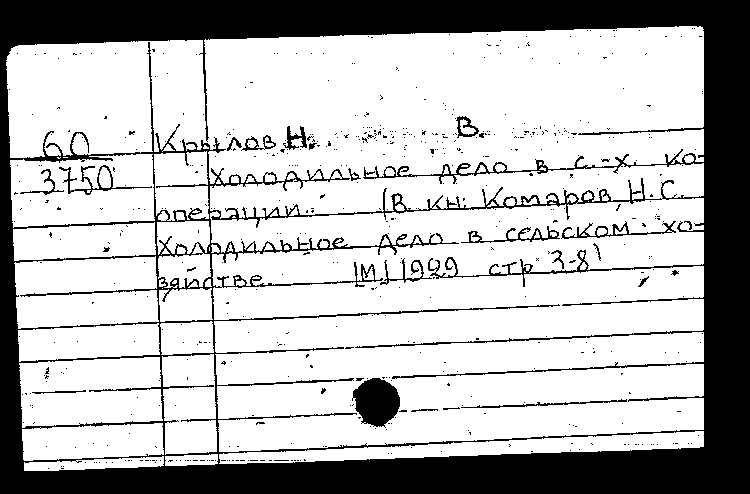 60 Крылов Н. В.
3750 Холодильное дело в с.-х. ко-
операции. (В кн: Комаров, Н.С.
Холодильное дело в сельском хо-
зяйстве. [М] 1929 стр 3-8)